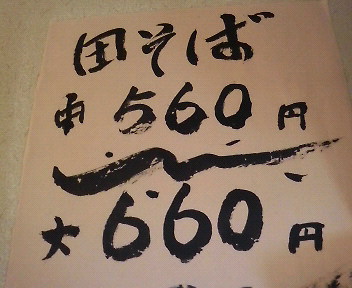 田そば
中 560円
大 660円